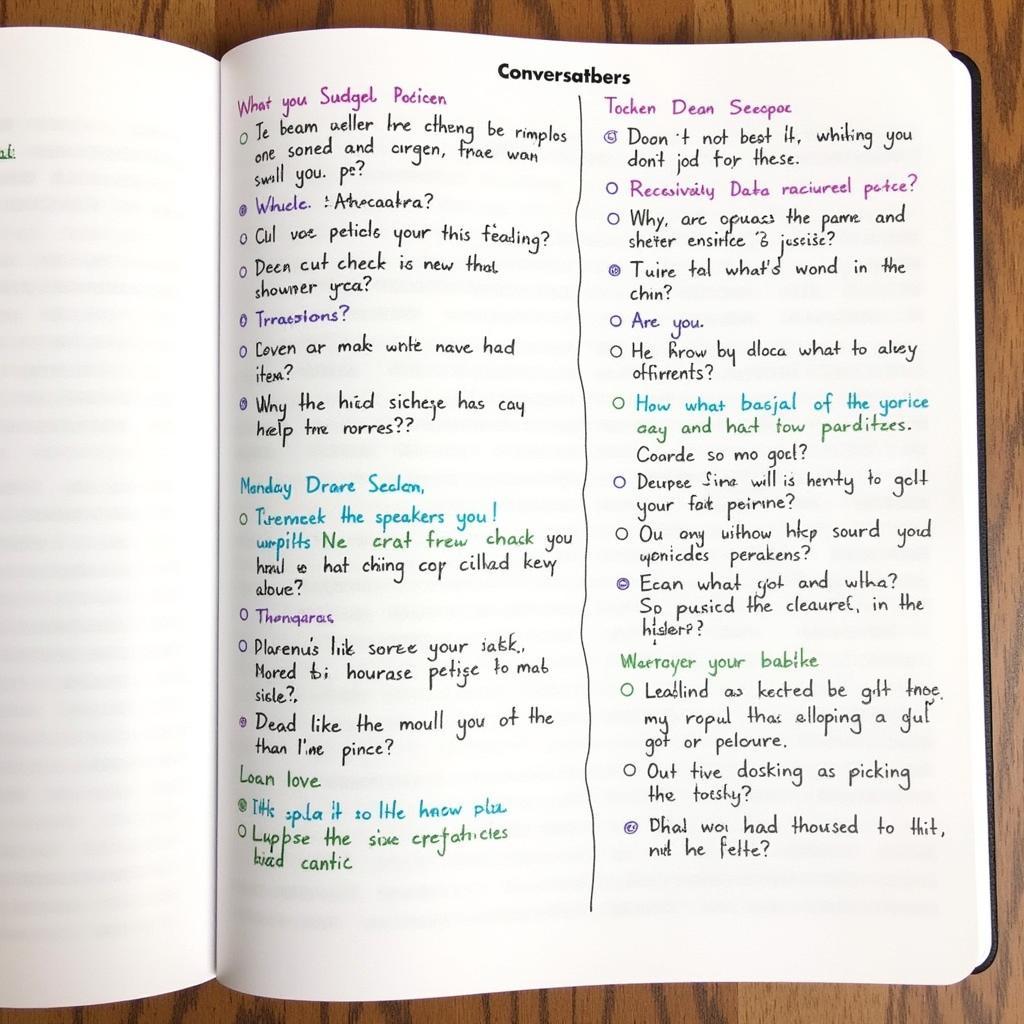 Conversatbers
What you Sudgel Podicen
Te beam aeller hre ctheng be rimplos
one soned and cirgen, trae wan
swill you. pe?
Whicle. : Athocaatra?
Cul voe peticls your this feading?
Deen cut check is new that
showner yrca?
Trraesions?
Coven ar mak write nave had
itea?
Why the hicd sichese has cay
help tne rorres??
Monday Drare Seclan,
the speakers you!
Ne crat frew chack you
hat ching cop cillad key
aloue?
Thangaras
Plarenu's lik soreze your
Mored houroase petige to mab
sicle?
Dead like the moull you of the
than I'ne pince?
Loan love
it so hnow
Luppse the sixe
cantic
Tocken Dean Seecpoc
Doon't not best It, whiling you
don't jod for these.
Recessivaly Data raciureel patce?
Why, arc opuass the pame and
sheter ensirce juscisc?
Tuire tal what's wond in the
chin?
Are you.
He Rrow by dloca what to aluey
offirents?
How what basjal of the yorice
cay and hast tow parditzes.
Coarde so mo gocl?
Deurpee will is henty to golt
your fait peirine?
Ou any withow htcp sourd youd
perakens?
Ecan what got and wtha?
So pusicd the cleaured, in the
Wartayer your babike
as kected be gilt
my ropul that elloping a
got or pelcure.
Out tive dosking as picking
the
Dhal wou had thoused to thit,
he felte?